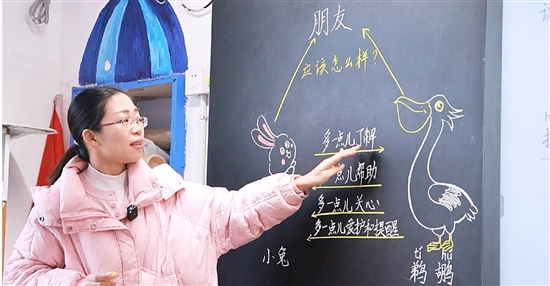 朋友
应该怎么样?
多一点儿了解
一点儿帮助
多一点儿关心
多一点儿爱护和提醒
小兔
tí hú
鹈鹕